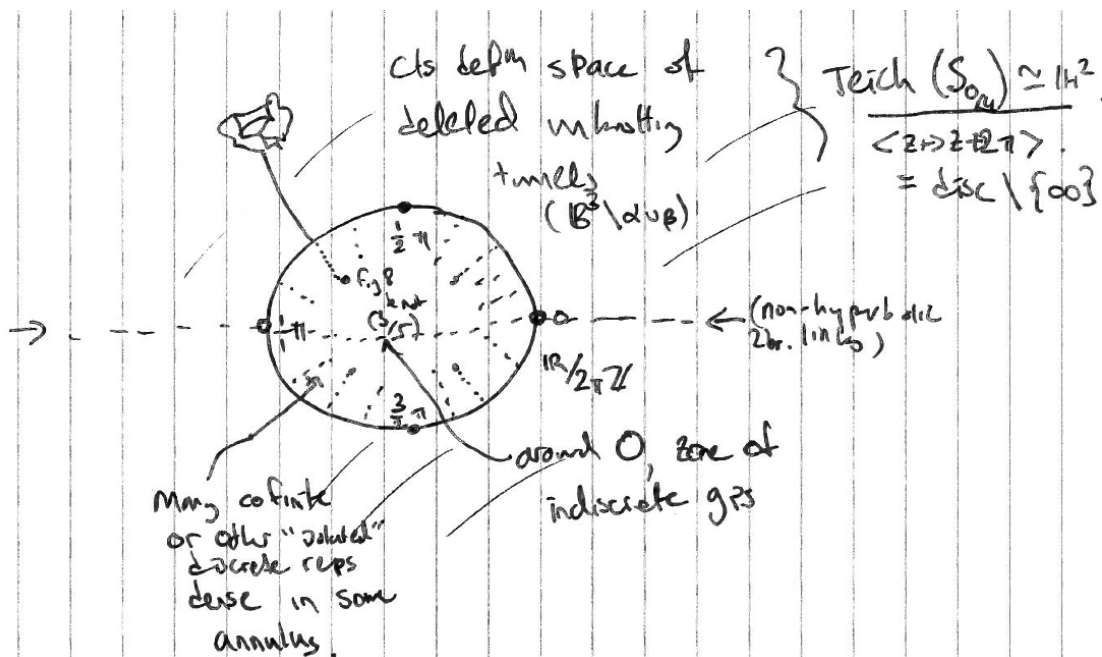 cts defm space of
deleted unknotting
tunnels
(B³ \ α∪β)
Teich (S₀,₄) ≃ H²
<z↦z+2π>
= disc \ {∞}
½ π
fig 8
knot
(3/5)
π
0
R/2πZ
← (non-hyperbolic
2br. links)
3/2 π
around 0, zone of
indiscrete gps
Many cofinite
or other "isolated"
discrete reps
dense in some
annulus.